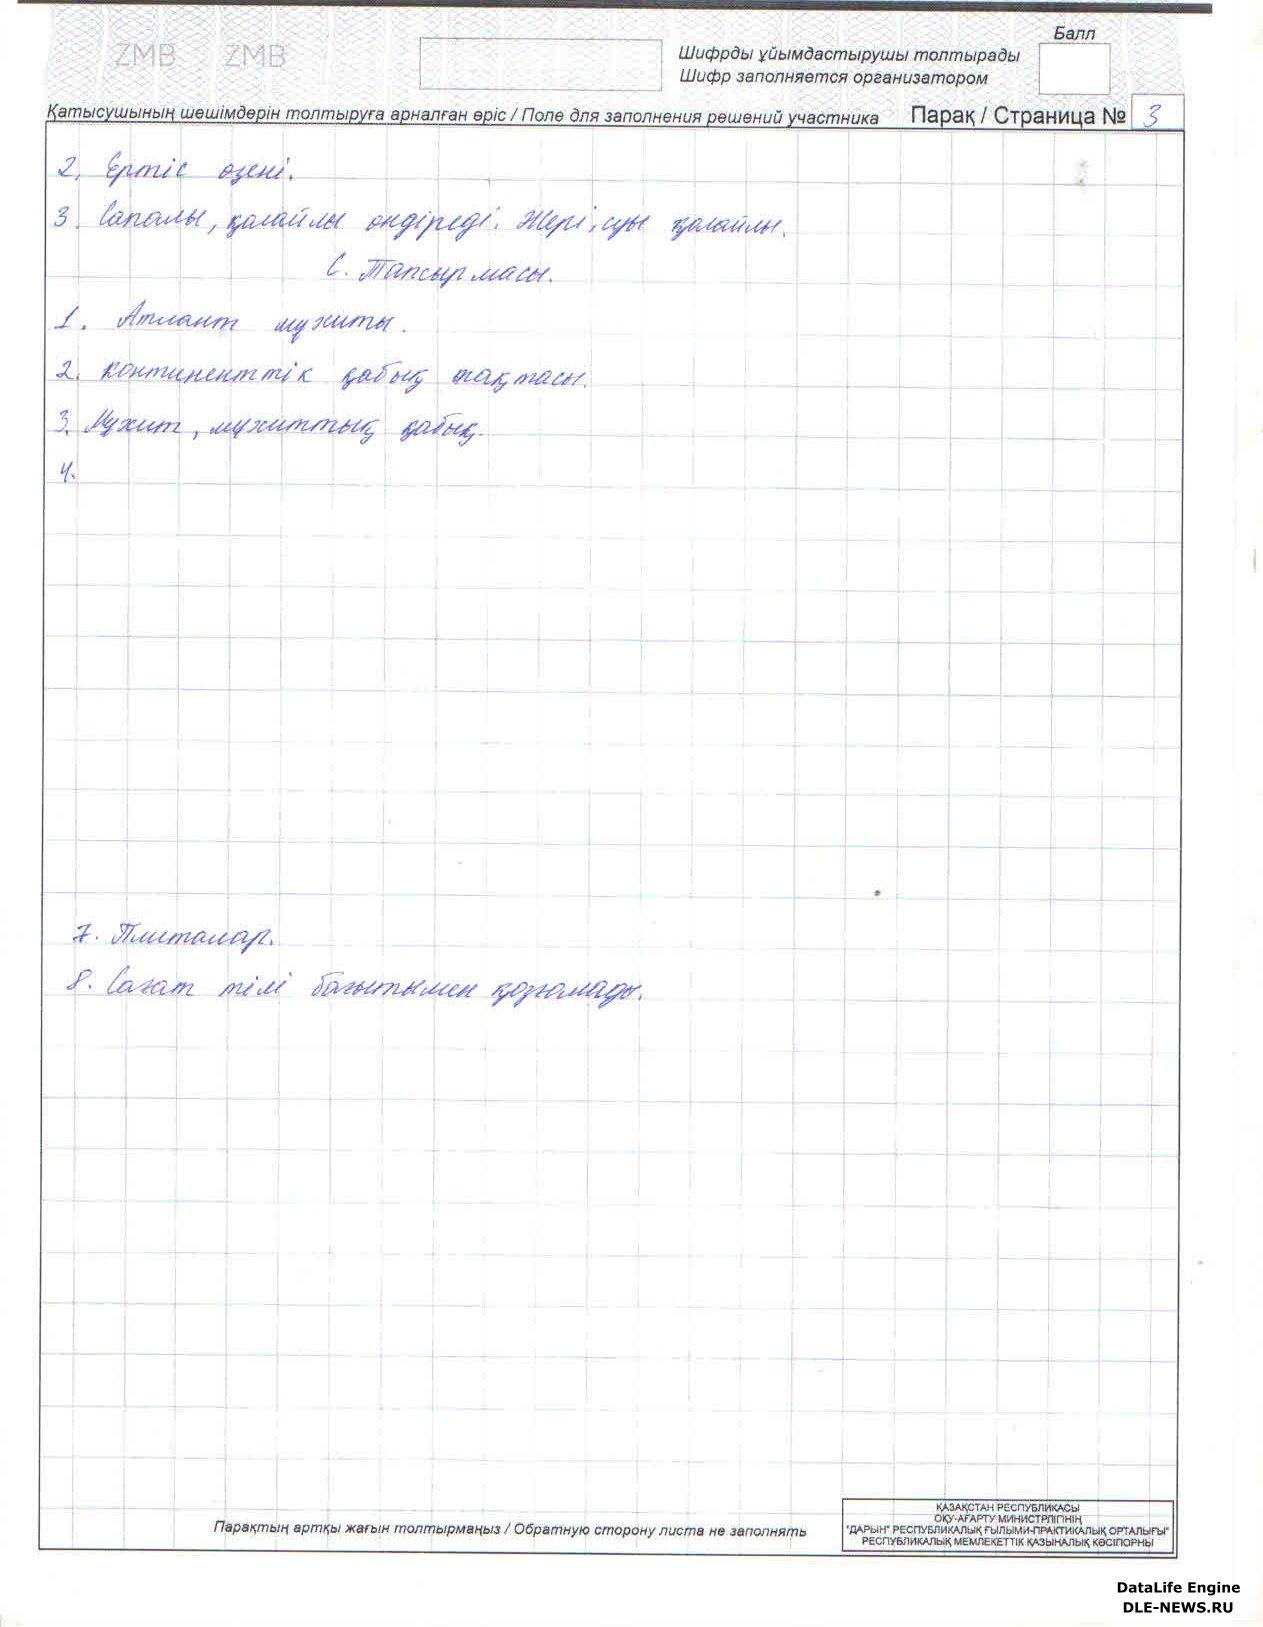 ZMB ZMB
Балл
Шифрды ұйымдастырушы толтырады
Шифр заполняется организатором
Қатысушының шешімдерін толтыруға арналған өріс / Поле для заполнения решений участника Парақ / Страница № 3
2. Ертіс өзені.
3. Сапалы, қолайлы өндіреді. Жері, суы қолайлы.
С. Тапсырмасы.
1. Атлант мұхиты.
2. континенттік қабық тақтасы.
3. Мұхит, мұхиттық қабық.
4.
7. Плиталар.
8. Сағат тілі бағытымен қозғалады.
Парақтың артқы жағын толтырмаңыз / Обратную сторону листа не заполнять
ҚАЗАҚСТАН РЕСПУБЛИКАСЫ
ОҚУ-АҒАРТУ МИНИСТРЛІГІНІҢ
"ДАРЫН" РЕСПУБЛИКАЛЫҚ ҒЫЛЫМИ-ПРАКТИКАЛЫҚ ОРТАЛЫҒЫ"
РЕСПУБЛИКАЛЫҚ МЕМЛЕКЕТТІК ҚАЗЫНАЛЫҚ КӘСІПОРНЫ
DataLife Engine
DLE-NEWS.RU